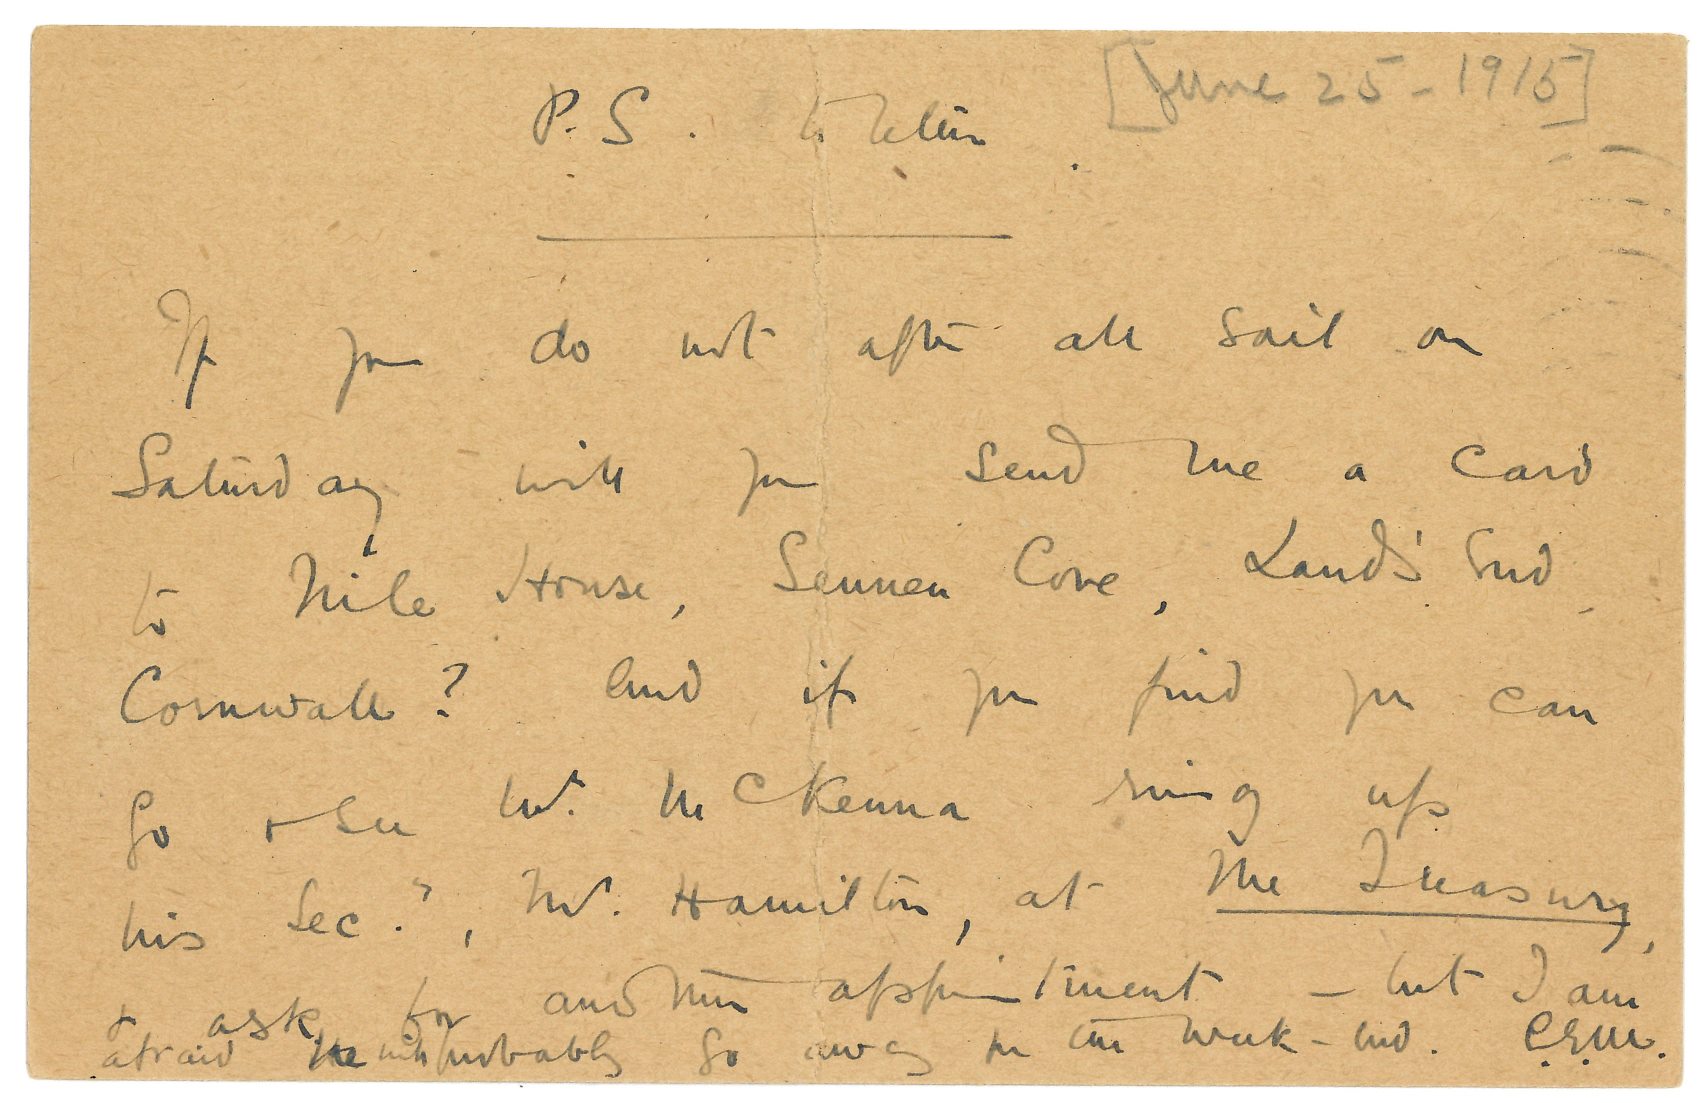 [June 25 - 1915]
P.S. to letter.
If you do not after all sail on
Saturday will you send me a card
to Nile House, Sennen Cove, Land's End,
Cornwall? And if you find you can
go & see Mr. McKenna ring up
his Secy., Mr. Hamilton, at the Treasury,
& ask for another appointment - but I am
afraid he will probably go away for the week-end. C.E.M.